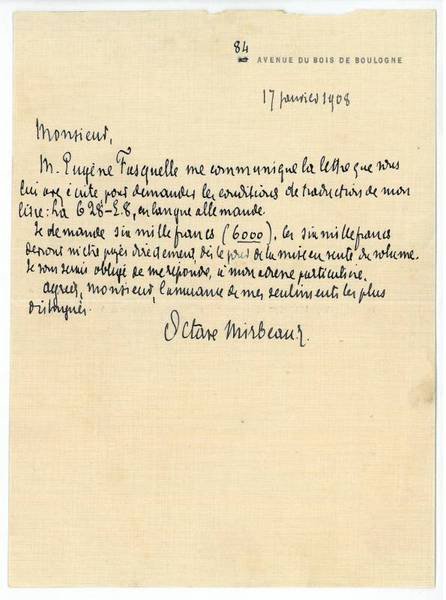 84
AVENUE DU BOIS DE BOULOGNE
17 janvier 1908
Monsieur,
M. Eugène Fasquelle me communique la lettre que vous
lui avez écrite, pour demander les conditions de traduction de mon
livre : La 628-E.8, en langue allemande.
Je demande six mille francs (6000). Les six mille francs
devront m'être payés directement, dès le jour de la mise en vente du volume.
Je vous serais obligé de me répondre, à mon adresse particulière.
Agréez, Monsieur, l'assurance de mes sentiments les plus
distingués.
Octave Mirbeau